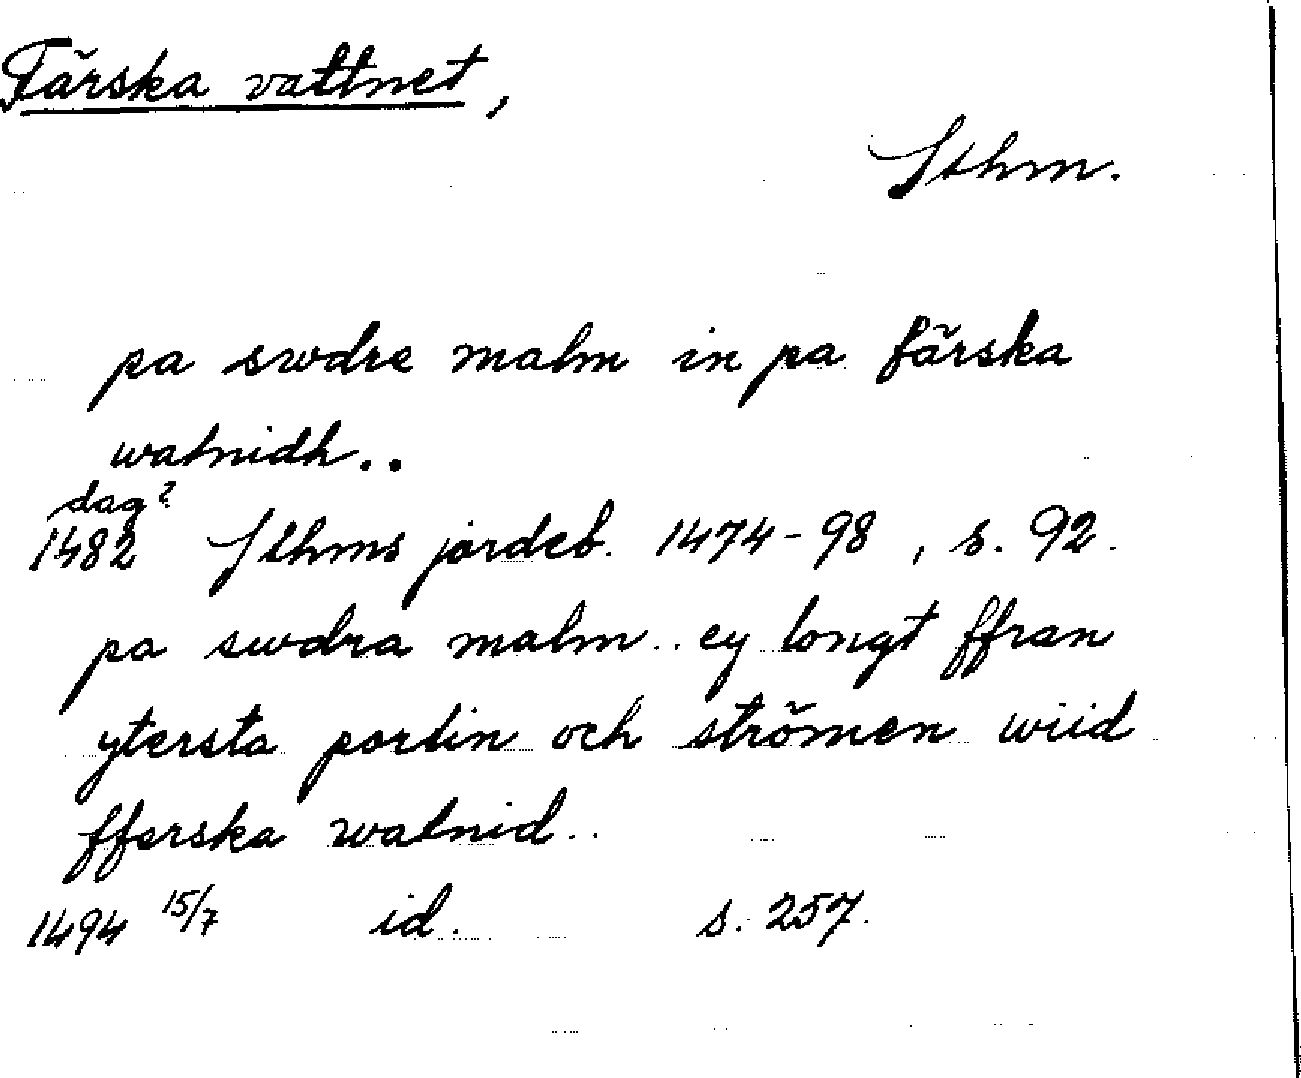 Färska vattnet,
Sthm.
pa swdre malm in pa färska
watnidh..
dag?
1482 Sthms jordeb. 1474-98, s. 92.
pa swdra malm.. ey longt ffran
ytersta portin och strömen wiid
fferska watnid..
1494 15/7 id. s. 257.